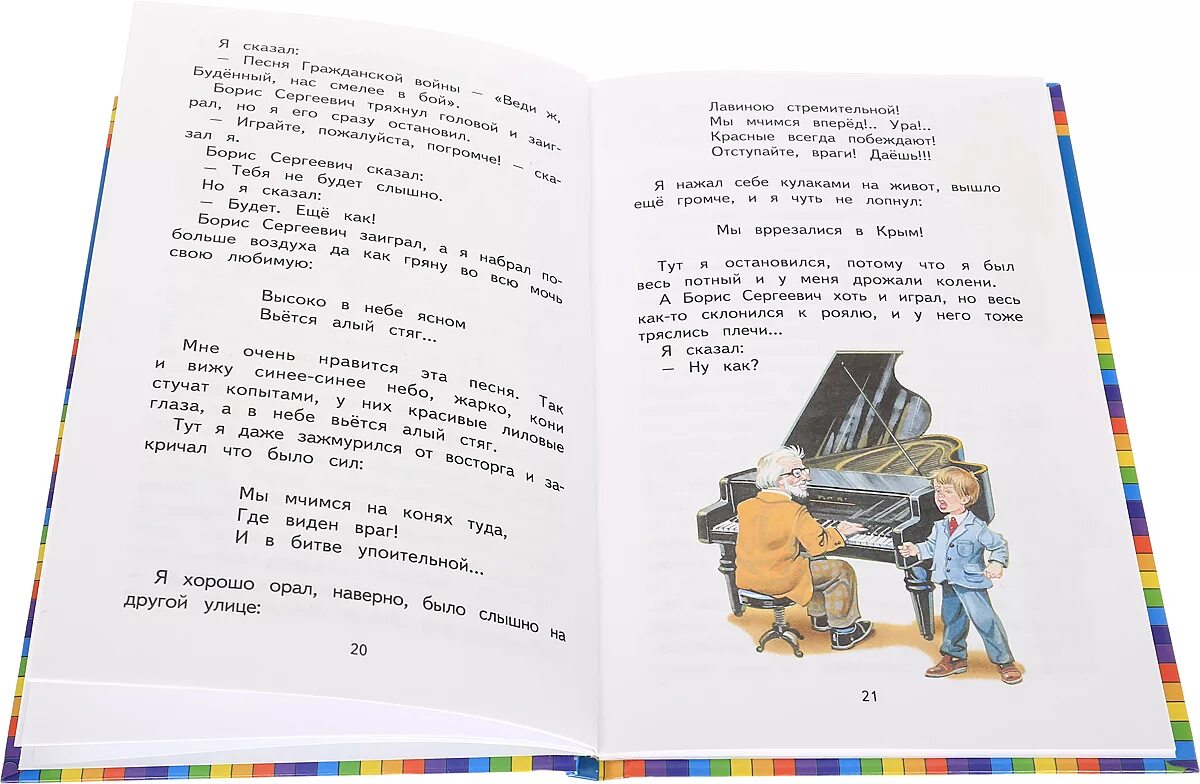 Я сказал:
— Песня Гражданской войны — «Веди ж,
Будённый, нас смелее в бой».
Борис Сергеевич тряхнул головой и заиг-
рал, но я его сразу остановил.
— Играйте, пожалуйста, погромче! — ска-
зал я.
Борис Сергеевич сказал:
— Тебя не будет слышно.
Но я сказал:
— Будет. Ещё как!
Борис Сергеевич заиграл, а я набрал по-
больше воздуха да как гряну во всю мочь
свою любимую:
Высоко в небе ясном
Вьётся алый стяг...
Мне очень нравится эта песня. Так
и вижу синее-синее небо, жарко, кони
стучат копытами, у них красивые лиловые
глаза, а в небе вьётся алый стяг.
Тут я даже зажмурился от восторга и за-
кричал что было сил:
Мы мчимся на конях туда,
Где виден враг!
И в битве упоительной...
Я хорошо орал, наверно, было слышно на
другой улице:
20
Лавиною стремительной!
Мы мчимся вперёд!.. Ура!..
Красные всегда побеждают!
Отступайте, враги! Даёшь!!!
Я нажал себе кулаками на живот, вышло
ещё громче, и я чуть не лопнул:
Мы вррезалися в Крым!
Тут я остановился, потому что я был
весь потный и у меня дрожали колени.
А Борис Сергеевич хоть и играл, но весь
как-то склонился к роялю, и у него тоже
тряслись плечи...
Я сказал:
— Ну как?
21